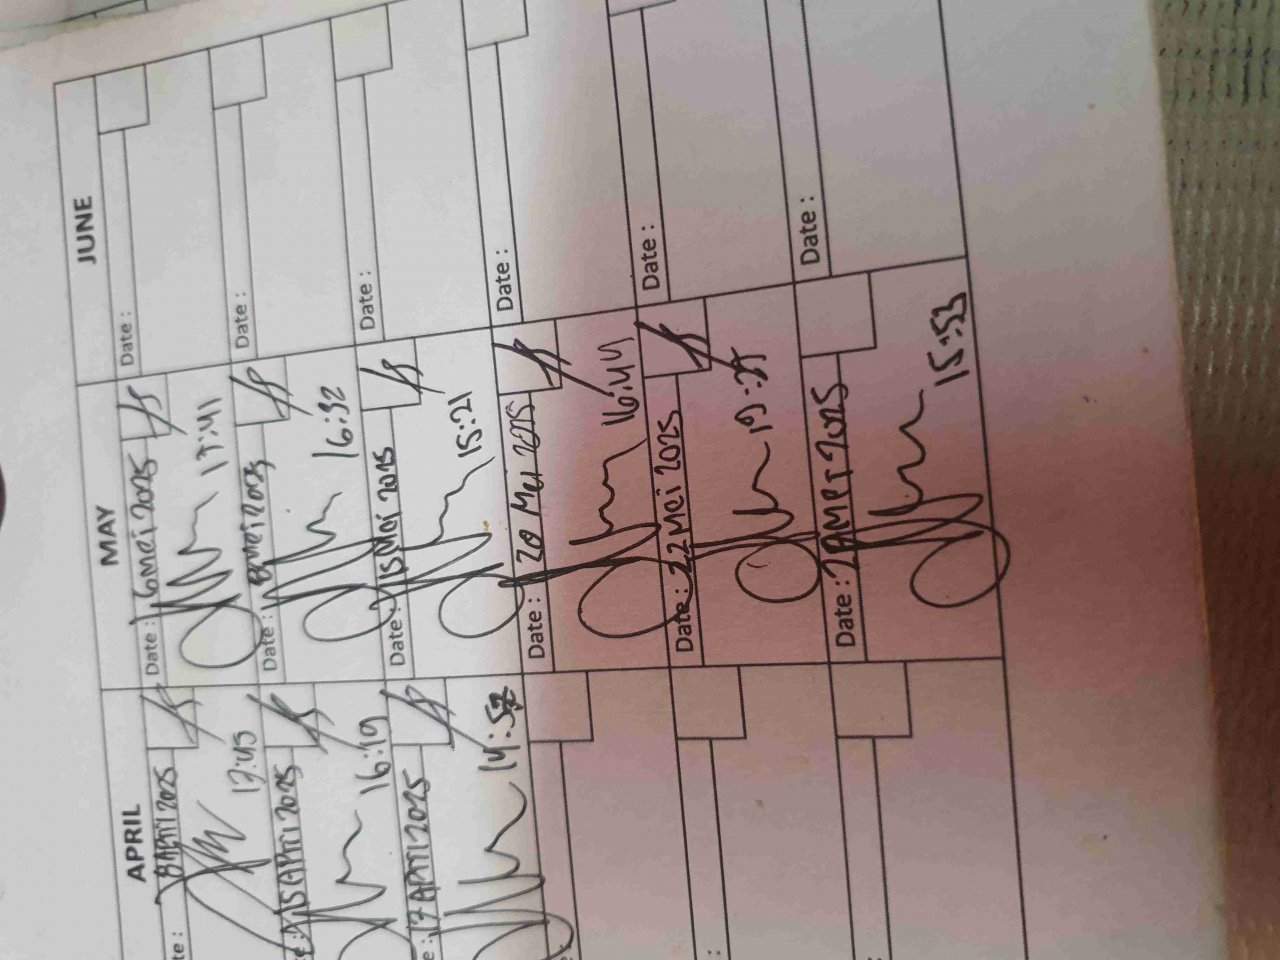 APRIL
8 April 2025
17:45
15 April 2025
16:19
17 April 2025
14:57
MAY
Date : 6 Mei 2025
17:41
Date : 8 Mei 2025
16:32
Date : 15 Mei 2025
15:21
Date : 20 Mei 2025
16:44
Date : 22 Mei 2025
19:25
Date :
15:53
JUNE
Date :
Date :
Date :
Date :
Date :
Date :